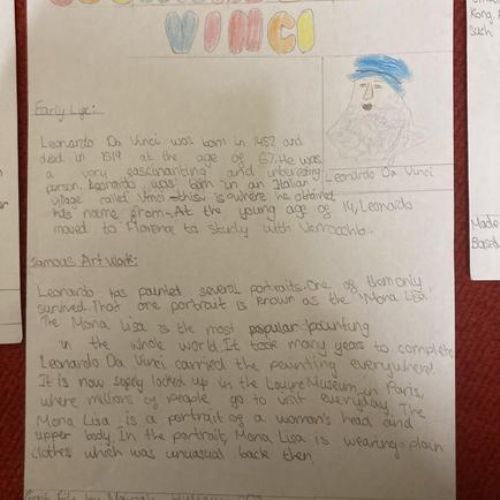 VINCI
Early Life:
Leonardo Da Vinci was born in 1452 and
died in 1519 at the age of 67. He was
a very fascinating and interesting
person. Leonardo was born in an Italian
village called Vinci - this is where he obtained
his name from. At the young age of 14, Leonardo
moved to Florence to study with Verrocchio.
Leonardo Da Vinci
Famous Art Work:
Leonardo has painted several portraits. One of them only
survived. That one portrait is known as the 'Mona Lisa
The Mona Lisa is the most popular painting
in the whole world. It took many years to complete
Leonardo Da Vinci carried the painting everywhere!
It is now safely locked up in the Louvre Museum in Paris,
where millions of people go to visit everyday. The
Mona Lisa is a portrait of a woman's head and
upper body. In the portrait, Mona Lisa is wearing plain
clothes which was unusual back then.
Fact file by
Kong
Such
Made
Based